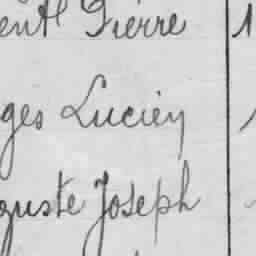 ent Pierre 1
ges Lucien
guste Joseph